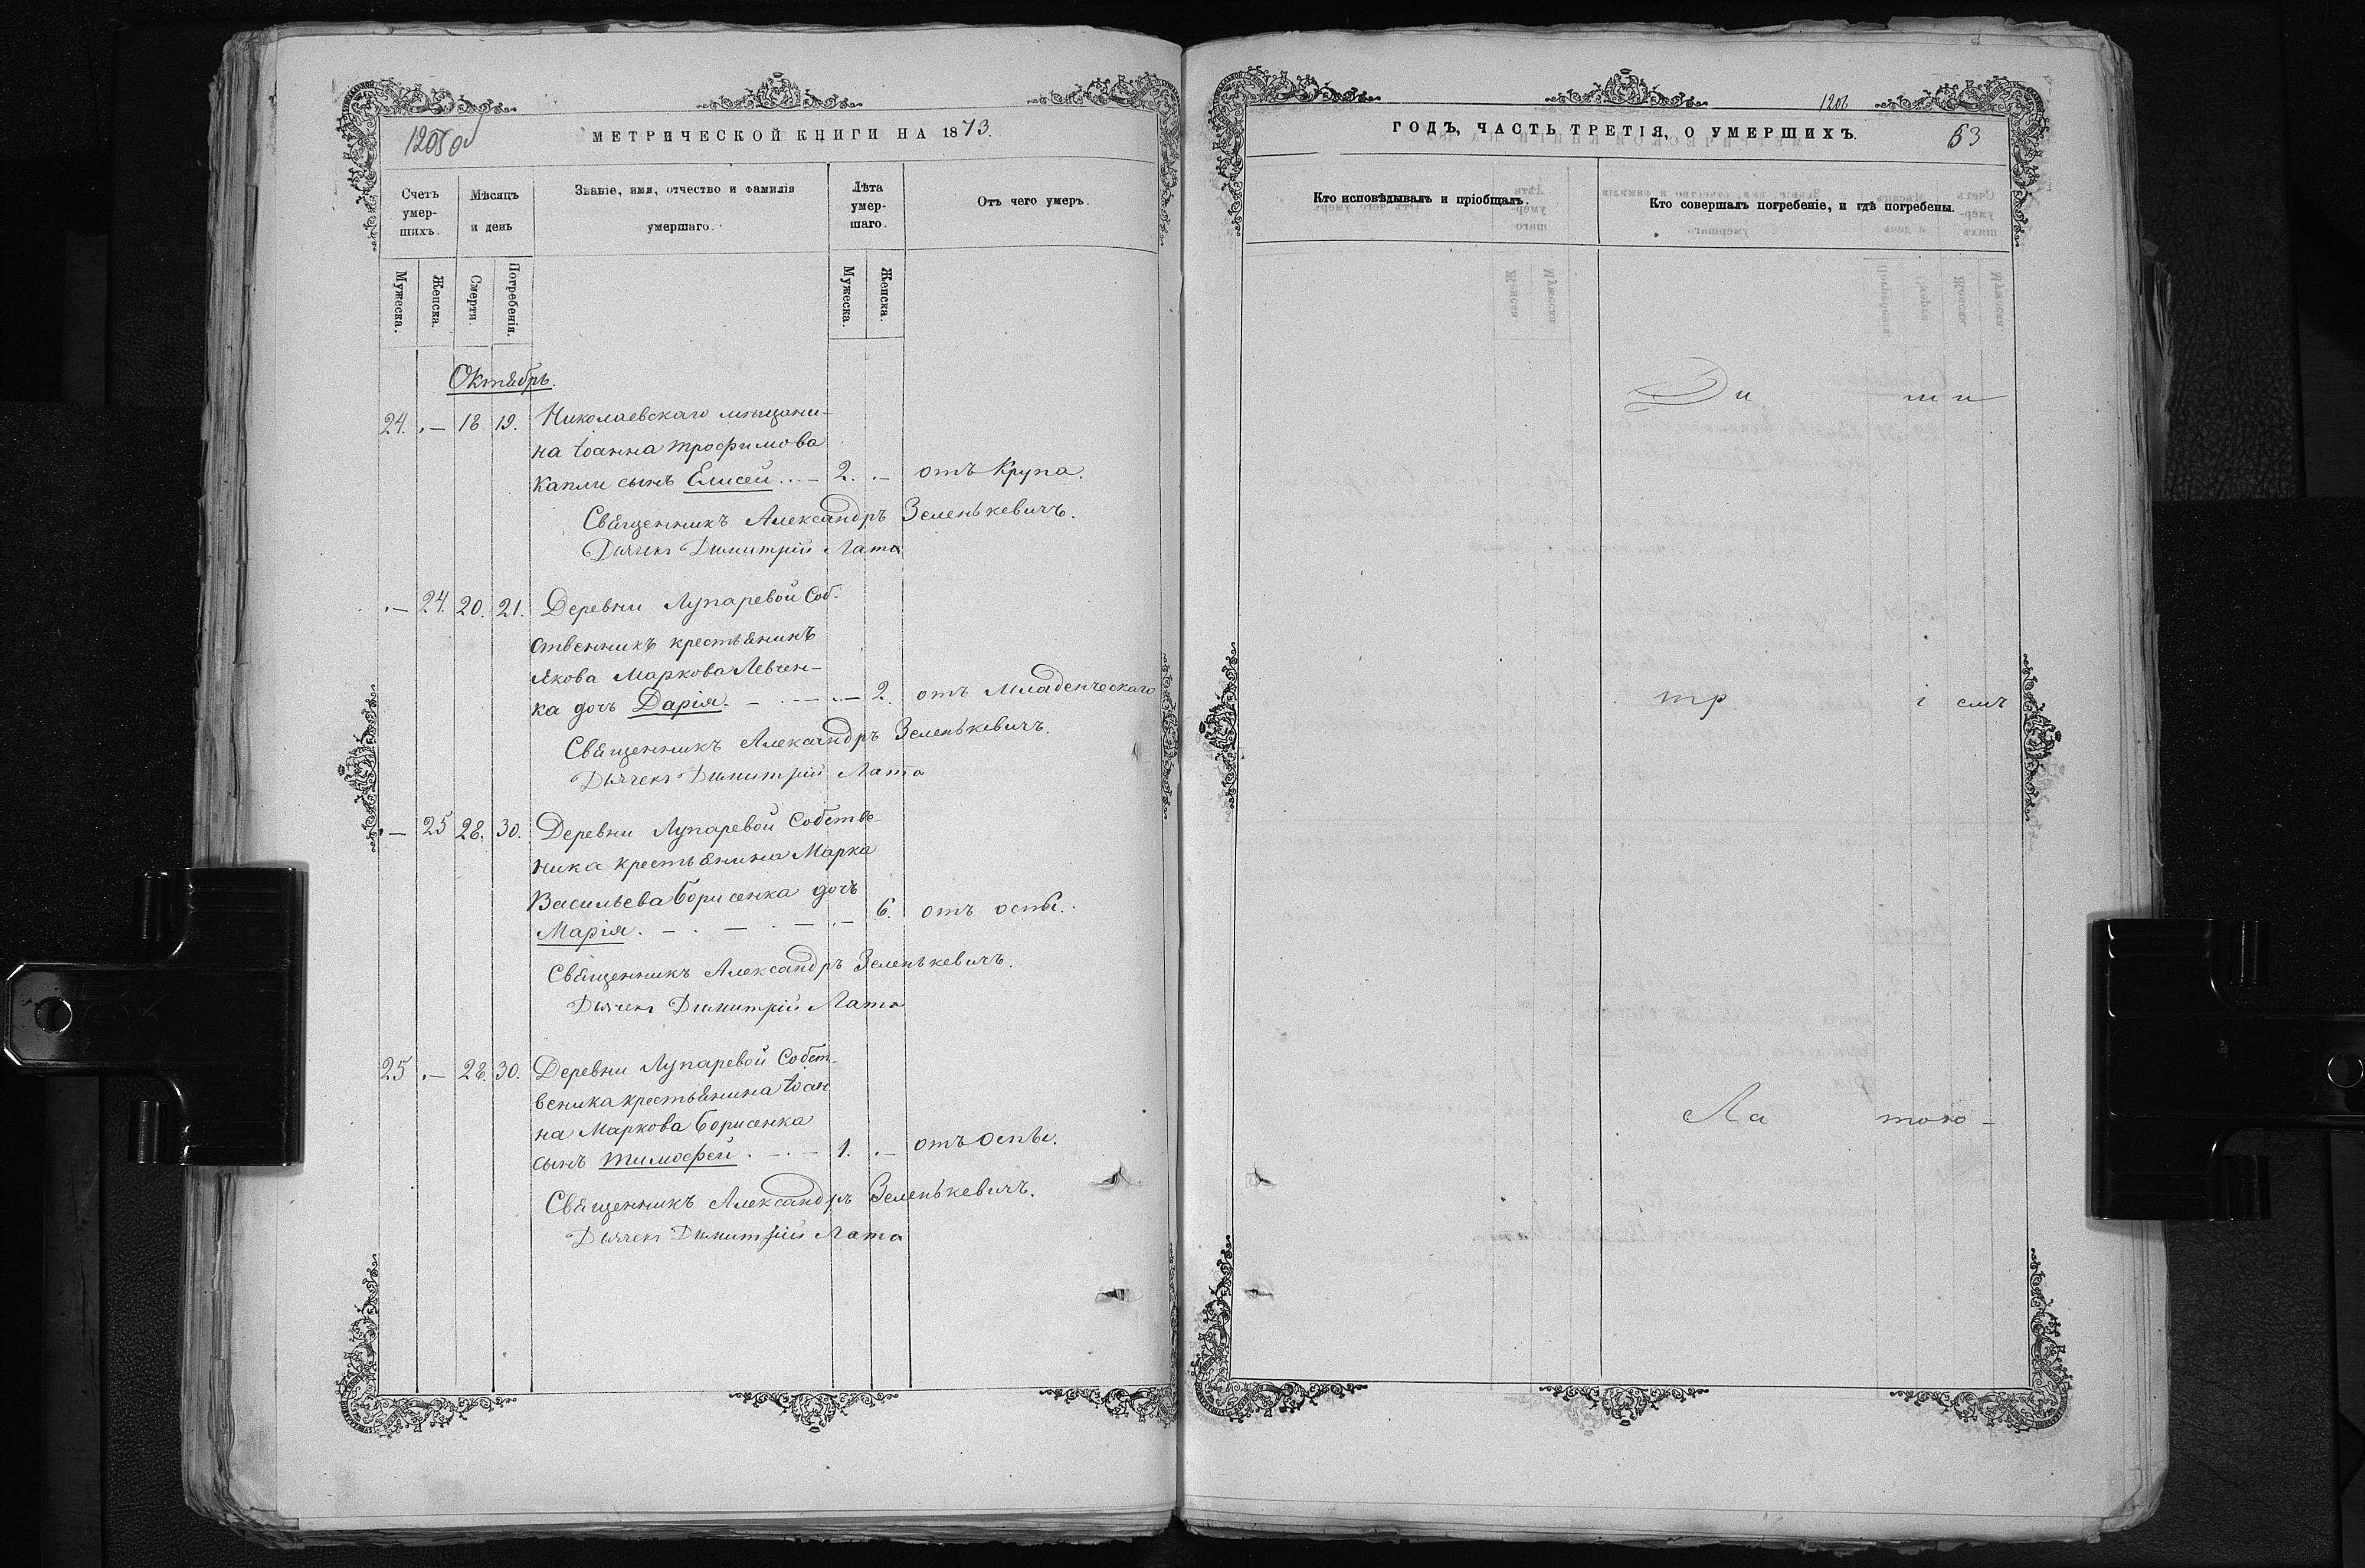 1205об
МЕТРИЧЕСКОЙ КНИГИ НА 1873.
Счетъ умер-шихъ.
Мѣсяцъ и день
Званіе, имя, отчество и фамилія умершаго.
Лѣта умер-шаго.
Отъ чего умеръ.
Мужеска.
Женска.
Смерти.
Погребенія.
Мужеска.
Женска.
Октябрь.
24. — 18 19. Николаевскаго мѣщани-
на Іоанна Трофимова
Капли сынъ Елисей 2. — отъ Крупа.
Священникъ Александръ Зеленькевичъ.
Дьячекъ Димитрій Лата
— 24. 20. 21. Деревни Лупаревой Соб-
ственникъ крестьяникъ
Якова Маркова Левчен-
ка дочь Дарія — 2. отъ Младенческаго
Священникъ Александръ Зеленькевичъ.
Дьячекъ Димитрій Лата
— 25 28. 30. Деревни Лупаревой Собстве-
ника крестьянина Марка
Васильева Борисенка дочь
Марія — 6. отъ оспы.
Священникъ Александръ Зеленькевичъ.
Дьячекъ Димитрій Лата
25 — 28. 30. Деревни Лупаревой Собст-
веника крестьянина Іоан
на Маркова Борисенка
сынъ Тимофей 1. — отъ оспы.
Священникъ Александръ Зеленькевичъ.
Дьячекъ Димитрій Лата
1206
ГОДЪ, ЧАСТЬ ТРЕТІЯ, О УМЕРШИХЪ.
53
Кто исповѣдывалъ и пріобщалъ.
Кто совершалъ погребеніе, и гдѣ погребены.
Ди ми
тр і емъ
Ла тою